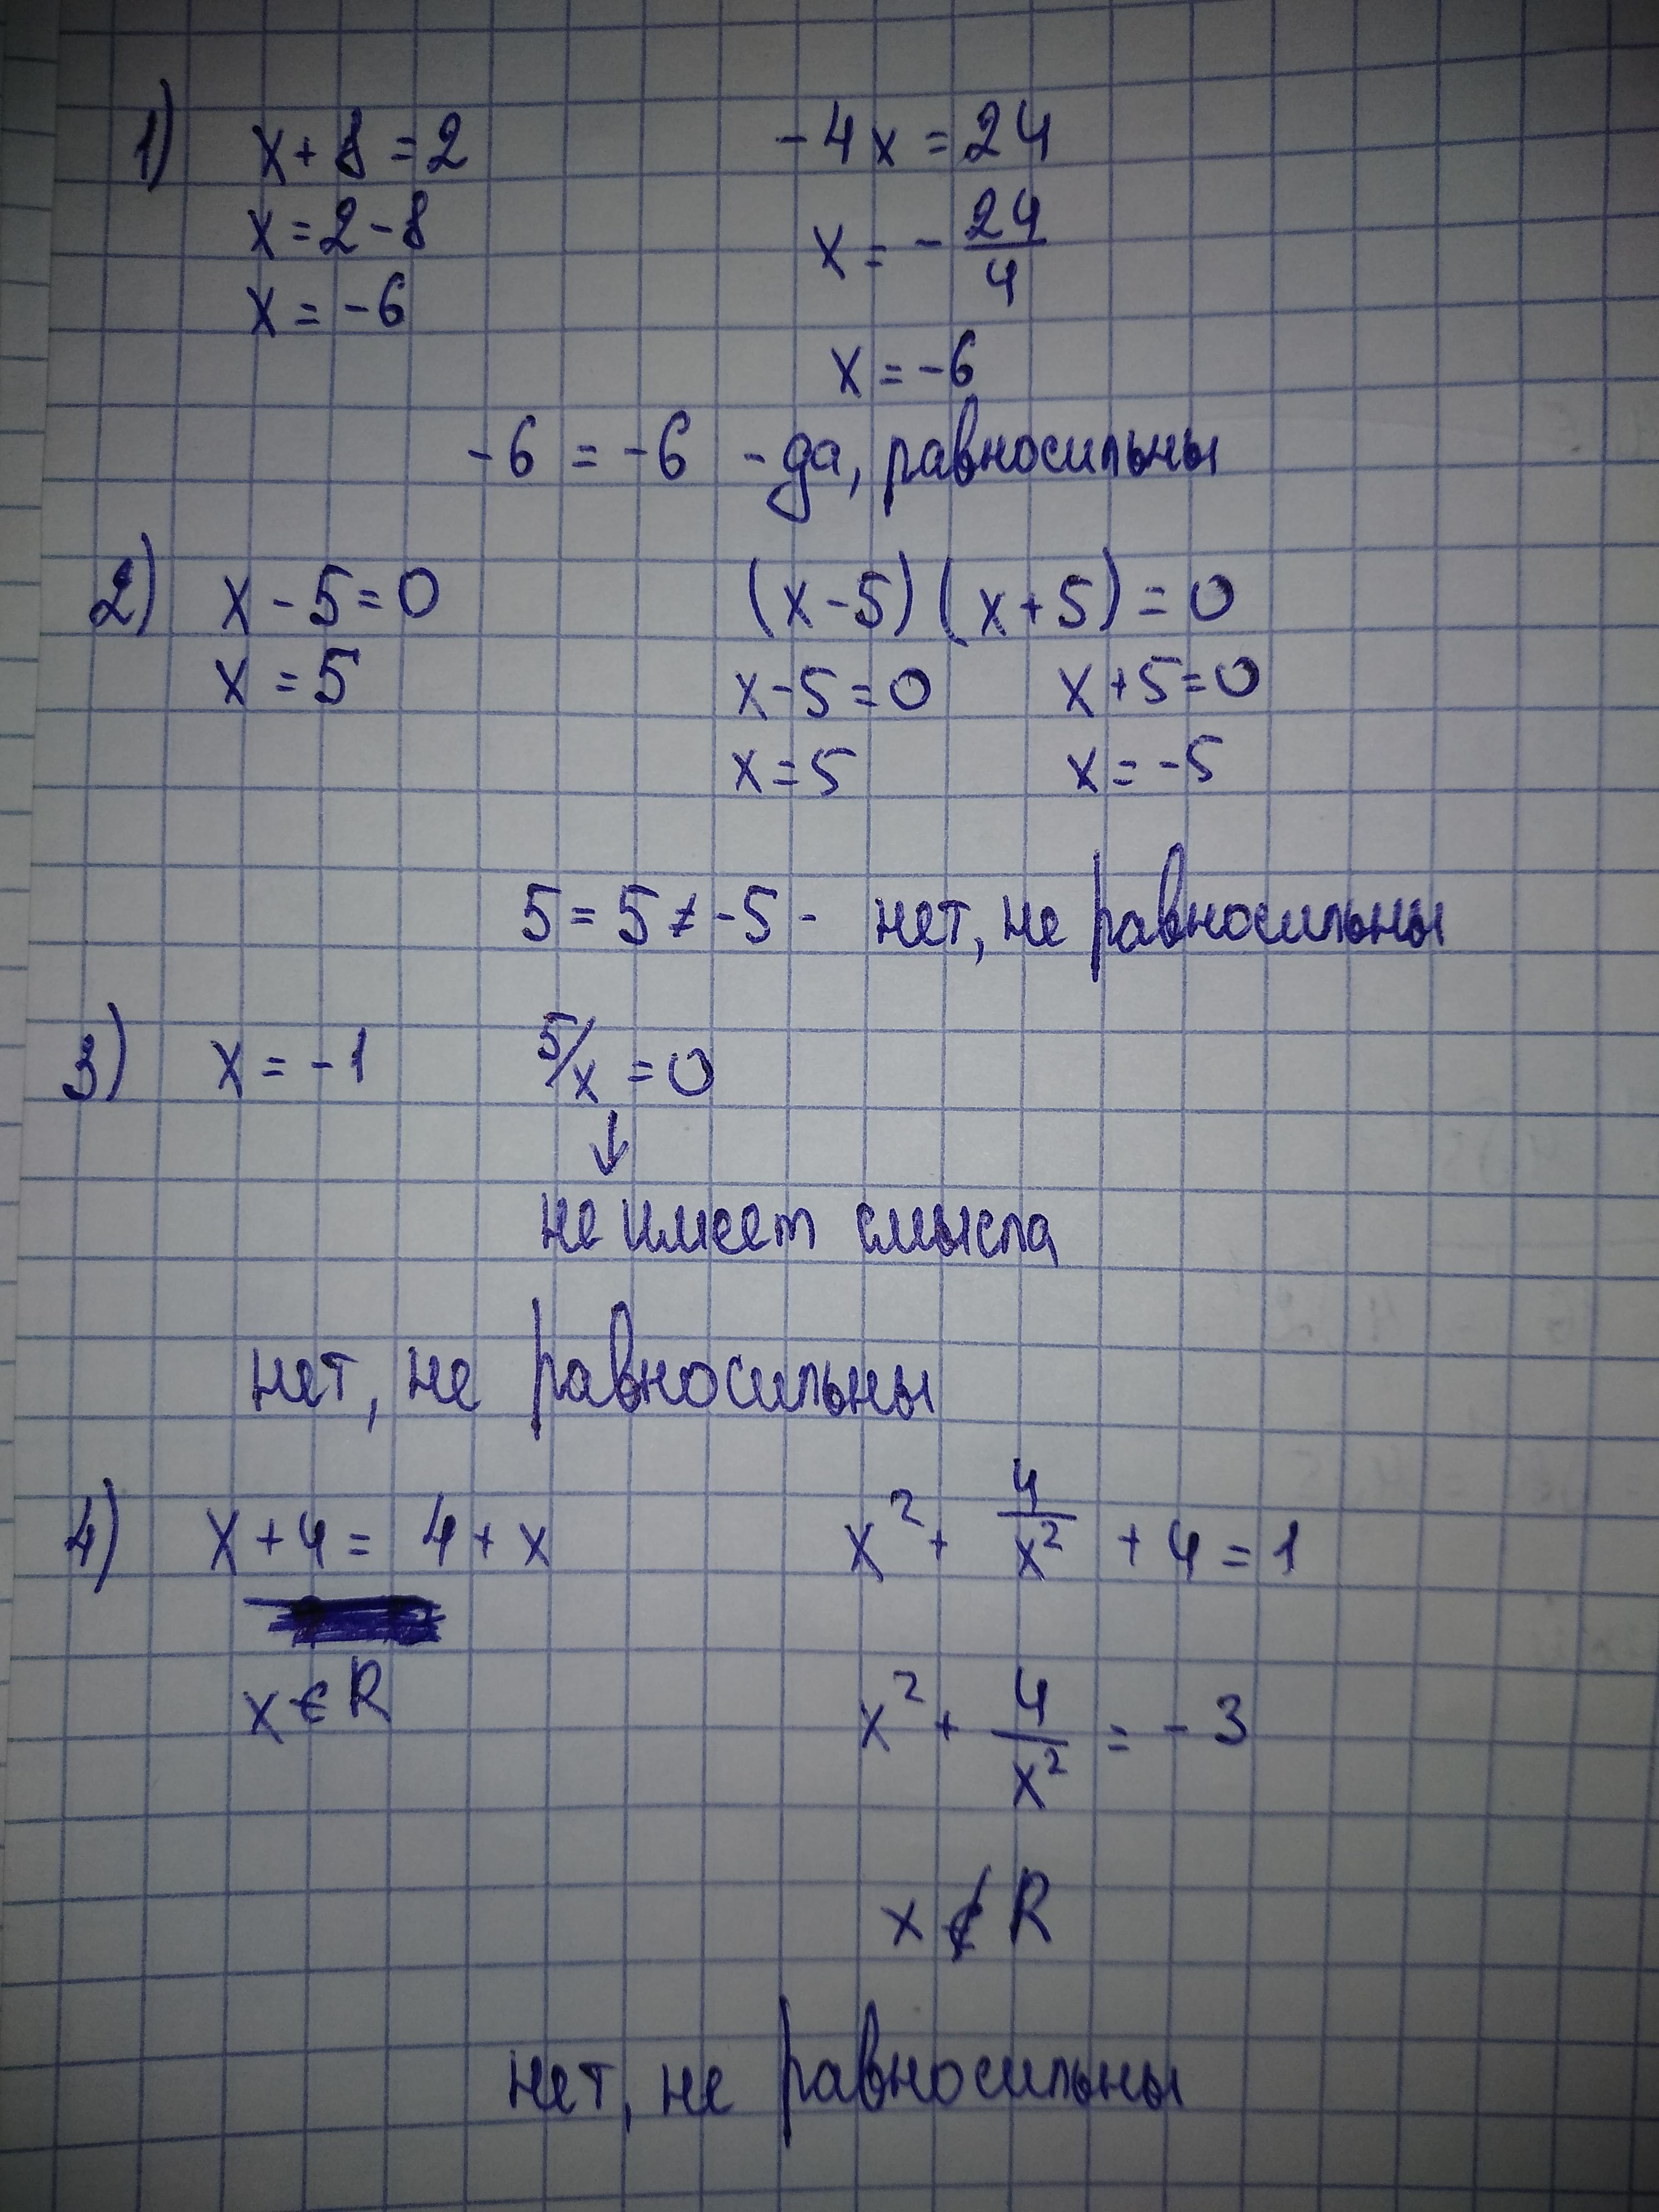 1) x + 8 = 2 -4x = 24
x = 2 - 8 x = - 24/4
x = -6 x = -6
-6 = -6 - да, равносильны
2) x - 5 = 0 (x-5)(x+5) = 0
x = 5 x-5=0 x+5=0
x = 5 x = -5
5 = 5 ≠ -5 - нет, не равносильны
3) x = -1 5/x = 0
↓
не имеет смысла
нет, не равносильны
4) x + 4 = 4 + x x² + 4/x² + 4 = 1
x ∈ R x² + 4/x² = -3
x ∉ R
нет, не равносильны